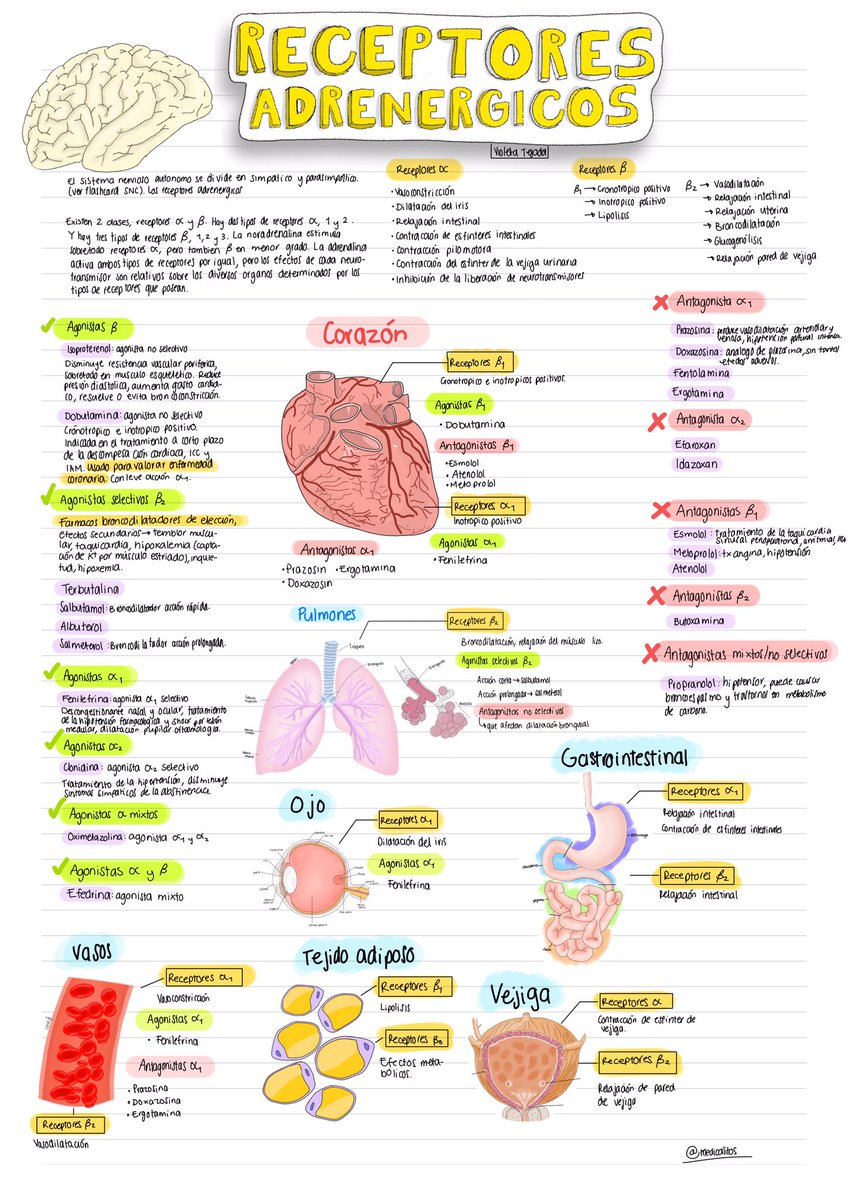 RECEPTORES
ADRENERGICOS
Violeta Tejada
El sistema nervioso autonomo se divide en simpatico y parasimpatico.
(ver flashcard SNC). Los receptores adrenergicos
Existen 2 clases, receptores α y β. Hay dos tipos de receptores α, 1 y 2.
Y hay tres tipos de receptores β, 1, 2 y 3. La noradrenalina estimula
sobretodo receptores α, pero tambien β en menor grado. La adrenalina
activa ambos tipos de receptores por igual, pero los efectos de cada neuro-
transmisor son relativos sobre los diversos organos determinados por los
tipos de receptores que posean.
Receptores α
• Vasoconstricción
• Dilatación del iris
• Relajación intestinal
• Contracción de esfinteres intestinales
• Contracción pilomotora
• Contracción del esfinter de la vejiga urinaria
• Inhibición de la liberación de neurotransmisores
Receptores β
β1 → Cronotropico positivo
→ Inotropico positivo
→ Lipolisis
β2 → Vasodilatación
→ Relajación intestinal
→ Relajación uterina
→ Broncodilatación
→ Relajación pared de vejiga
Agonistas β
Isoproterenol: agonista no selectivo
Disminuye resistencia vascular periferica,
sobretodo en musculo esqueletico. Reduce
presión diastolica, aumenta gasto cardia-
co, resuelve o evita broncoconstricción.
Dobutamina: agonista no selectivo
Cronotropico e inotropico positivo.
Indicada en el tratamiento a corto plazo
de la descompensación cardiaca, ICC y
IAM. Usado para valorar enfermedad
coronaria. Con leve acción α1.
Agonistas selectivos β2
Farmacos broncodilatadores de elección,
efectos secundarios → temblor muscu-
lar, taquicardia, hipokalemia (capta-
ción de K+ por músculo estriado), inquie-
tud, hipoxemia.
Terbutalina
Salbutamol: Broncodilatador acción rápida.
Albuterol
Salmeterol: Broncodilatador acción prolongada.
Agonistas α1
Fenilefrina: agonista α1 selectivo
Descongestionante nasal y ocular, tratamiento
de la hipotensión farmacologica y shock por lesión
medular, dilatación pupilar oftalmologia.
Agonistas α2
Clonidina: agonista α2 selectivo
Tratamiento de la hipertensión, disminuye
sintomas simpaticos de la abstinencia.
Agonistas α mixtos
Oximetazolina: agonista α1 y α2
Agonistas α y β
Efedrina: agonista mixto
Corazón
Receptores β1
Cronotropico e inotropicos positivos.
Agonistas β1
• Dobutamina
Antagonistas β1
• Esmolol
• Atenolol
• Metoprolol
Receptores α1
Inotropico positivo
Agonistas α1
• Fenilefrina
Antagonistas α1
• Prazosin • Ergotamina
• Doxazosin
Antagonista α1
Prazosina: produce vasodilatación arteriolar y
venosa, hipotensión postural
Doxazosina: analogo de prazosina, sin tantos
efectos adversos.
Fentolamina
Ergotamina
Antagonista α2
Efaroxan
Idazoxan
Antagonistas β1
Esmolol: tratamiento de la taquicardia
Metoprolol: tx angina, hipotensión
Atenolol
Antagonistas β2
Butoxamina
Antagonistas mixtos/no selectivos
Propranolol: hipotensor, puede causar
broncoespasmo y trastorno en metabolismo
de carbono.
Pulmones
Receptores β2
Broncodilatación, relajación del músculo liso.
Agonistas selectivos β2
Acción corta → salbutamol
Acción prolongada → salmeterol
Antagonistas no selectivos
→ que afectan dilatación bronquial
Ojo
Receptores α1
Dilatación del iris
Agonistas α1
Fenilefrina
Gastrointestinal
Receptores α1
Relajación intestinal
Contracción de esfinteres intestinales
Receptores β2
Relajación intestinal
Vasos
Receptores α1
Vasoconstricción
Agonistas α1
• Fenilefrina
Antagonistas α1
• Prazosina
• Doxazosina
• Ergotamina
Receptores β2
Vasodilatación
Tejido adiposo
Receptores β1
Lipolisis
Receptores β3
Efectos meta-
bolicos.
Vejiga
Receptores α
Contracción de esfinter de
vejiga.
Receptores β2
Relajación de pared
de vejiga
@medicalitos